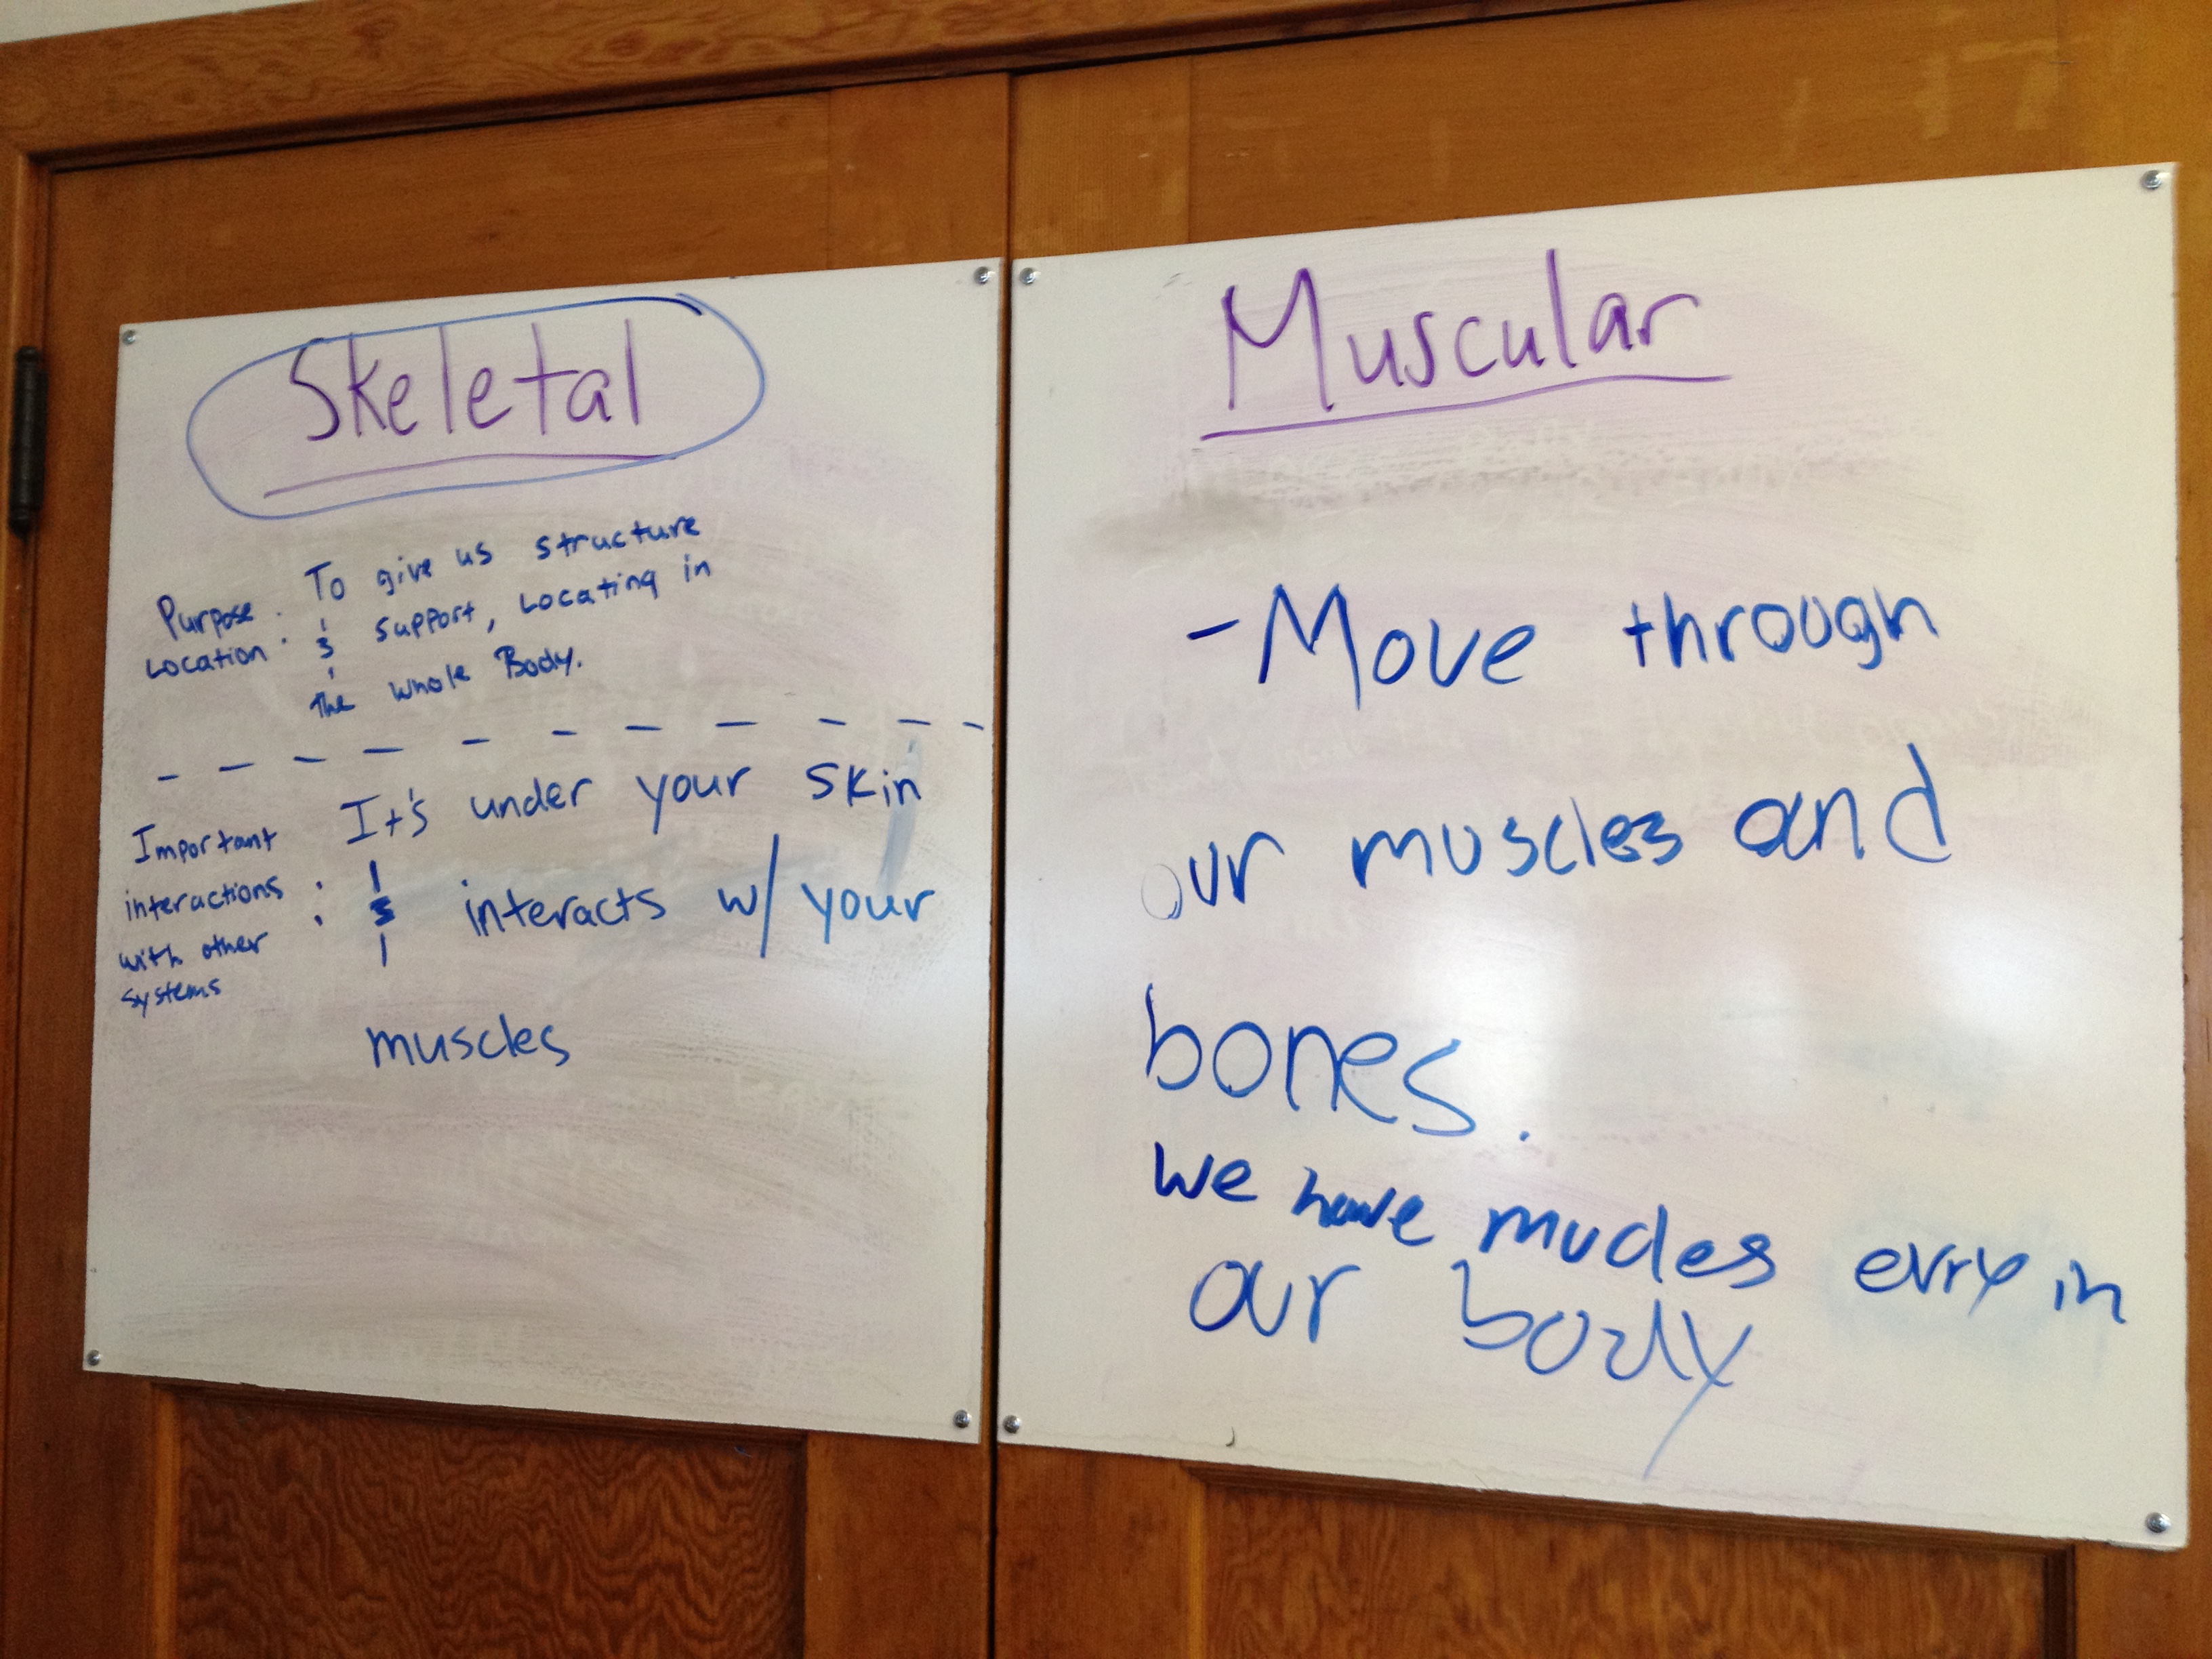 Skeletal
Purpose : To give us structure
Location & support, Locating in
the whole Body.
Important It's under your skin
interactions : & interacts w/ your
with other
systems
muscles
Muscular
- Move through
our muscles and
bones.
we have mucles evry in
our body